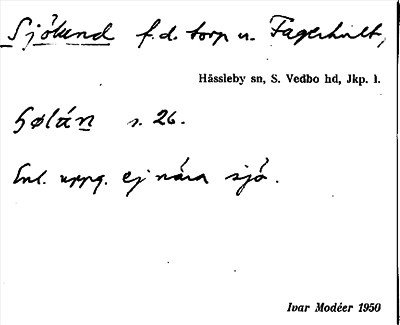 Sjölund f.d. torp u. Fagerhult,
Hässleby sn, S. Vedbo hd, Jkp. l.
s. 26.
Enl. uppg. ej nära sjö.
Ivar Modéer 1950